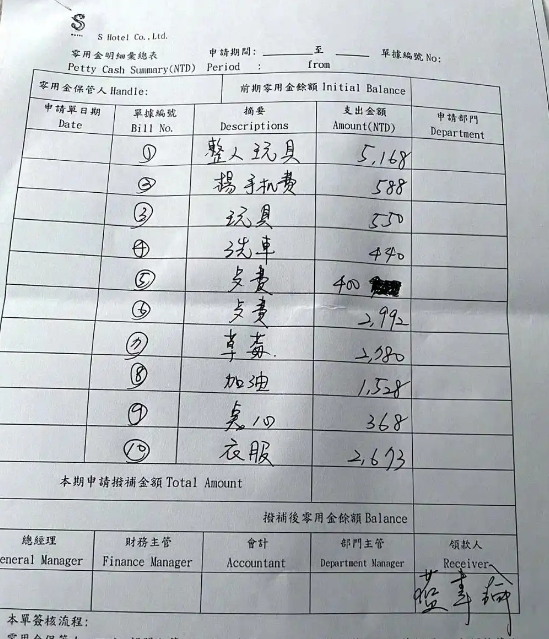 S
S Hotel Co., Ltd.
零用金明細彙總表 申請期間: 至 單據編號 No:
Petty Cash Summary(NTD) Period : from
零用金保管人 Handle: 前期零用金餘額 Initial Balance
申請單日期 單據編號 摘要 支出金額 申請部門
Date Bill No. Descriptions Amount(NTD) Department
① 整人玩具 5,168
② 楊手机費 588
③ 玩具 550
④ 洗車 440
⑤ 点費 400
⑥ 点費 2,992
⑦ 草莓 2,780
⑧ 加油 1,528
⑨ 点心 368
⑩ 衣服 2,673
本期申請撥補金額 Total Amount
撥補後零用金餘額 Balance
總經理 財務主管 會計 部門主管 領款人
eneral Manager Finance Manager Accountant Department Manager Receiver
本單簽核流程: